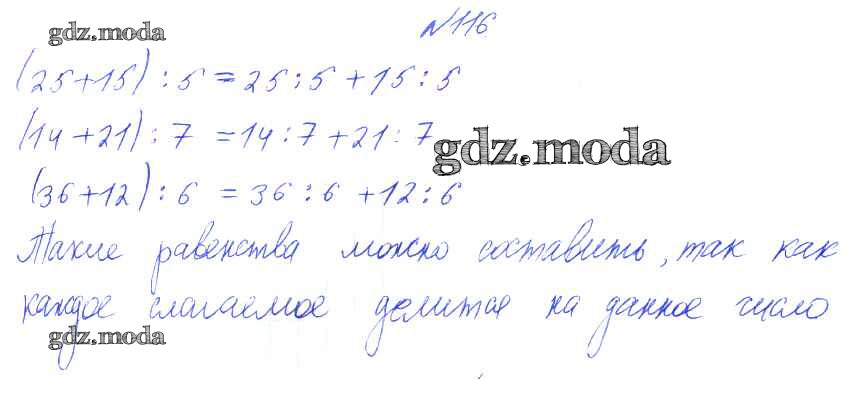 gdz.moda
№116
(25+15):5=25:5+15:5
(14+21):7=14:7+21:7
gdz.moda
(36+12):6=36:6+12:6
Такие равенства можно составить, так как
каждое слагаемое делится на данное число
gdz.moda